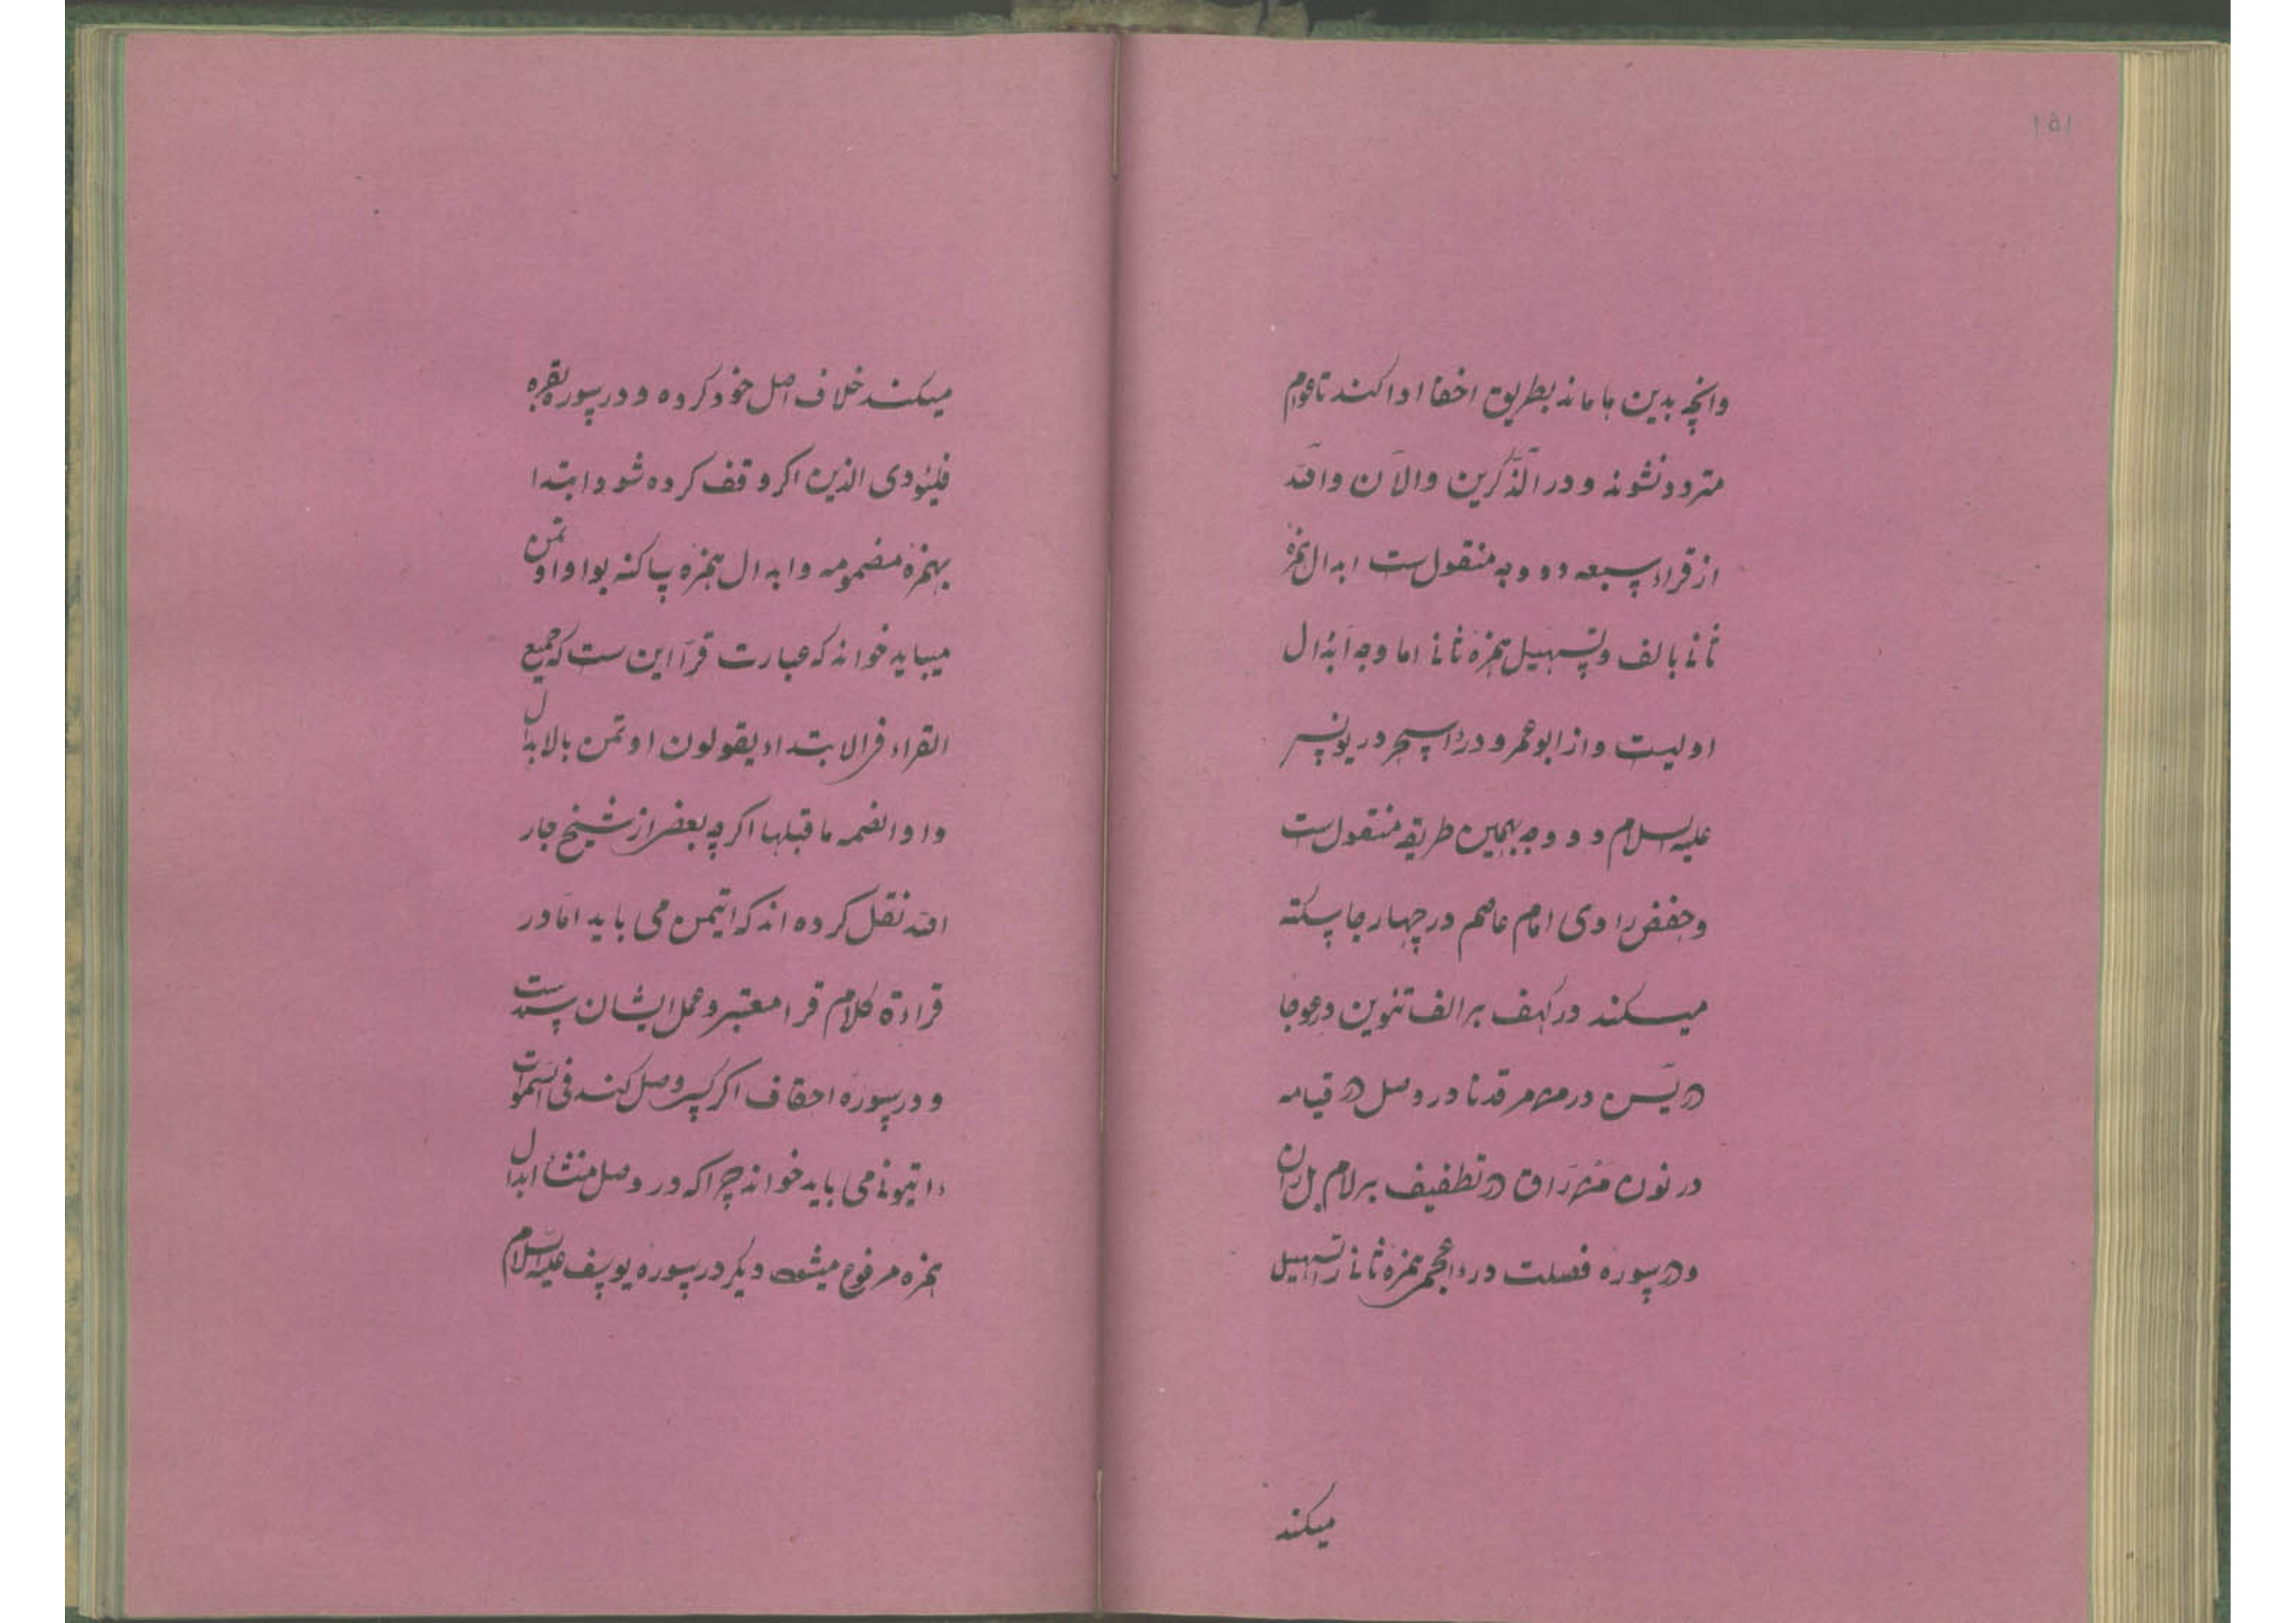 ۱۵۱
وانچه بدین ماماند بطریق اخفا ادا کند تا عوام
متردد نشوند و در آلذّکرین والآن وآللّه
از قراء سبعه دو وجه منقول ست ابدال همزهٔ
ثانی بالف و تسهیل همزهٔ ثانی اما وجه ابدال
اولیست و از ابو عمرو در ءاسحر در یونس
علیه السلام دو وجه بهمین طریقه منقول ست
و حفص راوی امام عاصم در چهار جا سکته
میکند در کهف بر الف تنوین در عوجا
در یٓس در من مرقدنا در وصل در قیامه
در نون من راق در تطفیف بر لام بل ران
و در سوره فصلت در ءاعجمی همزهٔ ثانی را تسهیل
میکند
میکند خلاف اصل خود کرده و در سوره بقره
فلیؤدی الذین اکر وقف کرده شود ابتدا
بهمزهٔ مضمومه و ابدال همزهٔ ساکنه بواو اوتمن
میباید خواند که عبارت قرآ این ست که جمیع
القراء فی الابتداء یقولون اوتمن بالابدال
واوا لضمه ما قبلها اکرچه بعضی از شیخ جار
اللّه نقل کرده اند که ایتمن می باید امّا در
قراءة کلام قرا معتبر و عمل ایشان سندست
و در سورهٔ احقاف اکر کسی وصل کند فی السموات
ءایتونی می باید خواند چرا که در وصل منشاء ابدال
همزه مرفوع میشود دیکر در سورهٔ یوسف علیه السلام